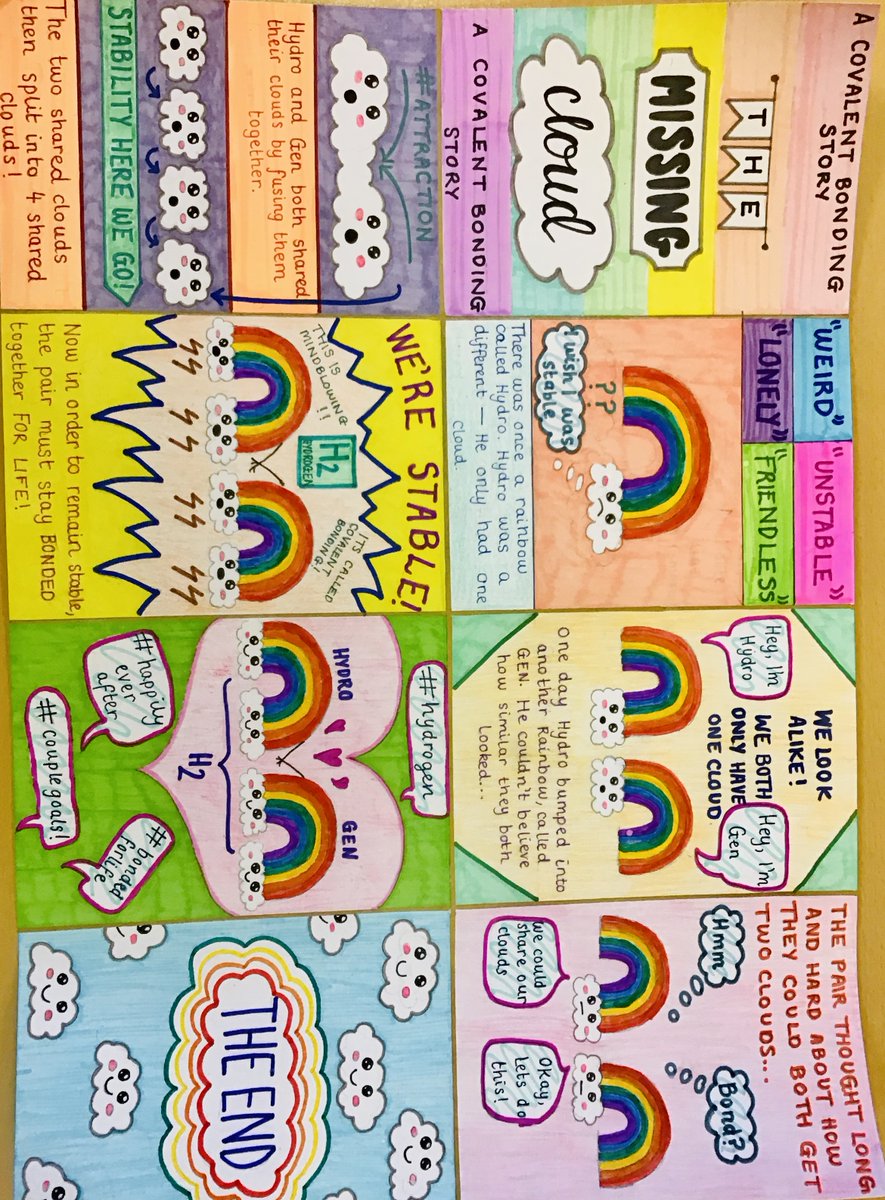 A COVALENT BONDING
STORY
THE
MISSING
cloud
A COVALENT BONDING
STORY
"WEIRD" "UNSTABLE"
"LONELY" "FRIENDLESS"
??
I wish I was
stable
There was once a rainbow
called Hydro. Hydro was a
different — He only had one
cloud.
Hey, I'm
Hydro
WE LOOK
ALIKE!
WE BOTH
ONLY HAVE
ONE CLOUD
Hey, I'm
Gen
One day Hydro bumped into
another Rainbow, called
GEN. He couldn't believe
how similar they both
looked...
THE PAIR THOUGHT LONG
AND HARD ABOUT HOW
THEY COULD BOTH GET
TWO CLOUDS...
Hmm
Bond?
We could
share our
clouds
Okay,
lets do
this!
#ATTRACTION
Hydro and Gen both shared
their clouds by fusing them
together.
STABILITY HERE WE GO!
The two shared clouds
then split into 4 shared
clouds!
WE'RE STABLE!
THIS IS
MINDBLOWING
!!
H2
HYDROGEN
ITS CALLED
COVALENT
BONDING!
Now in order to remain stable,
the pair must stay BONDED
together FOR LIFE!
#hydrogen
HYDRO
GEN
H2
#happily
ever
after
#couplegoals!
#bonded
forlife
THE END